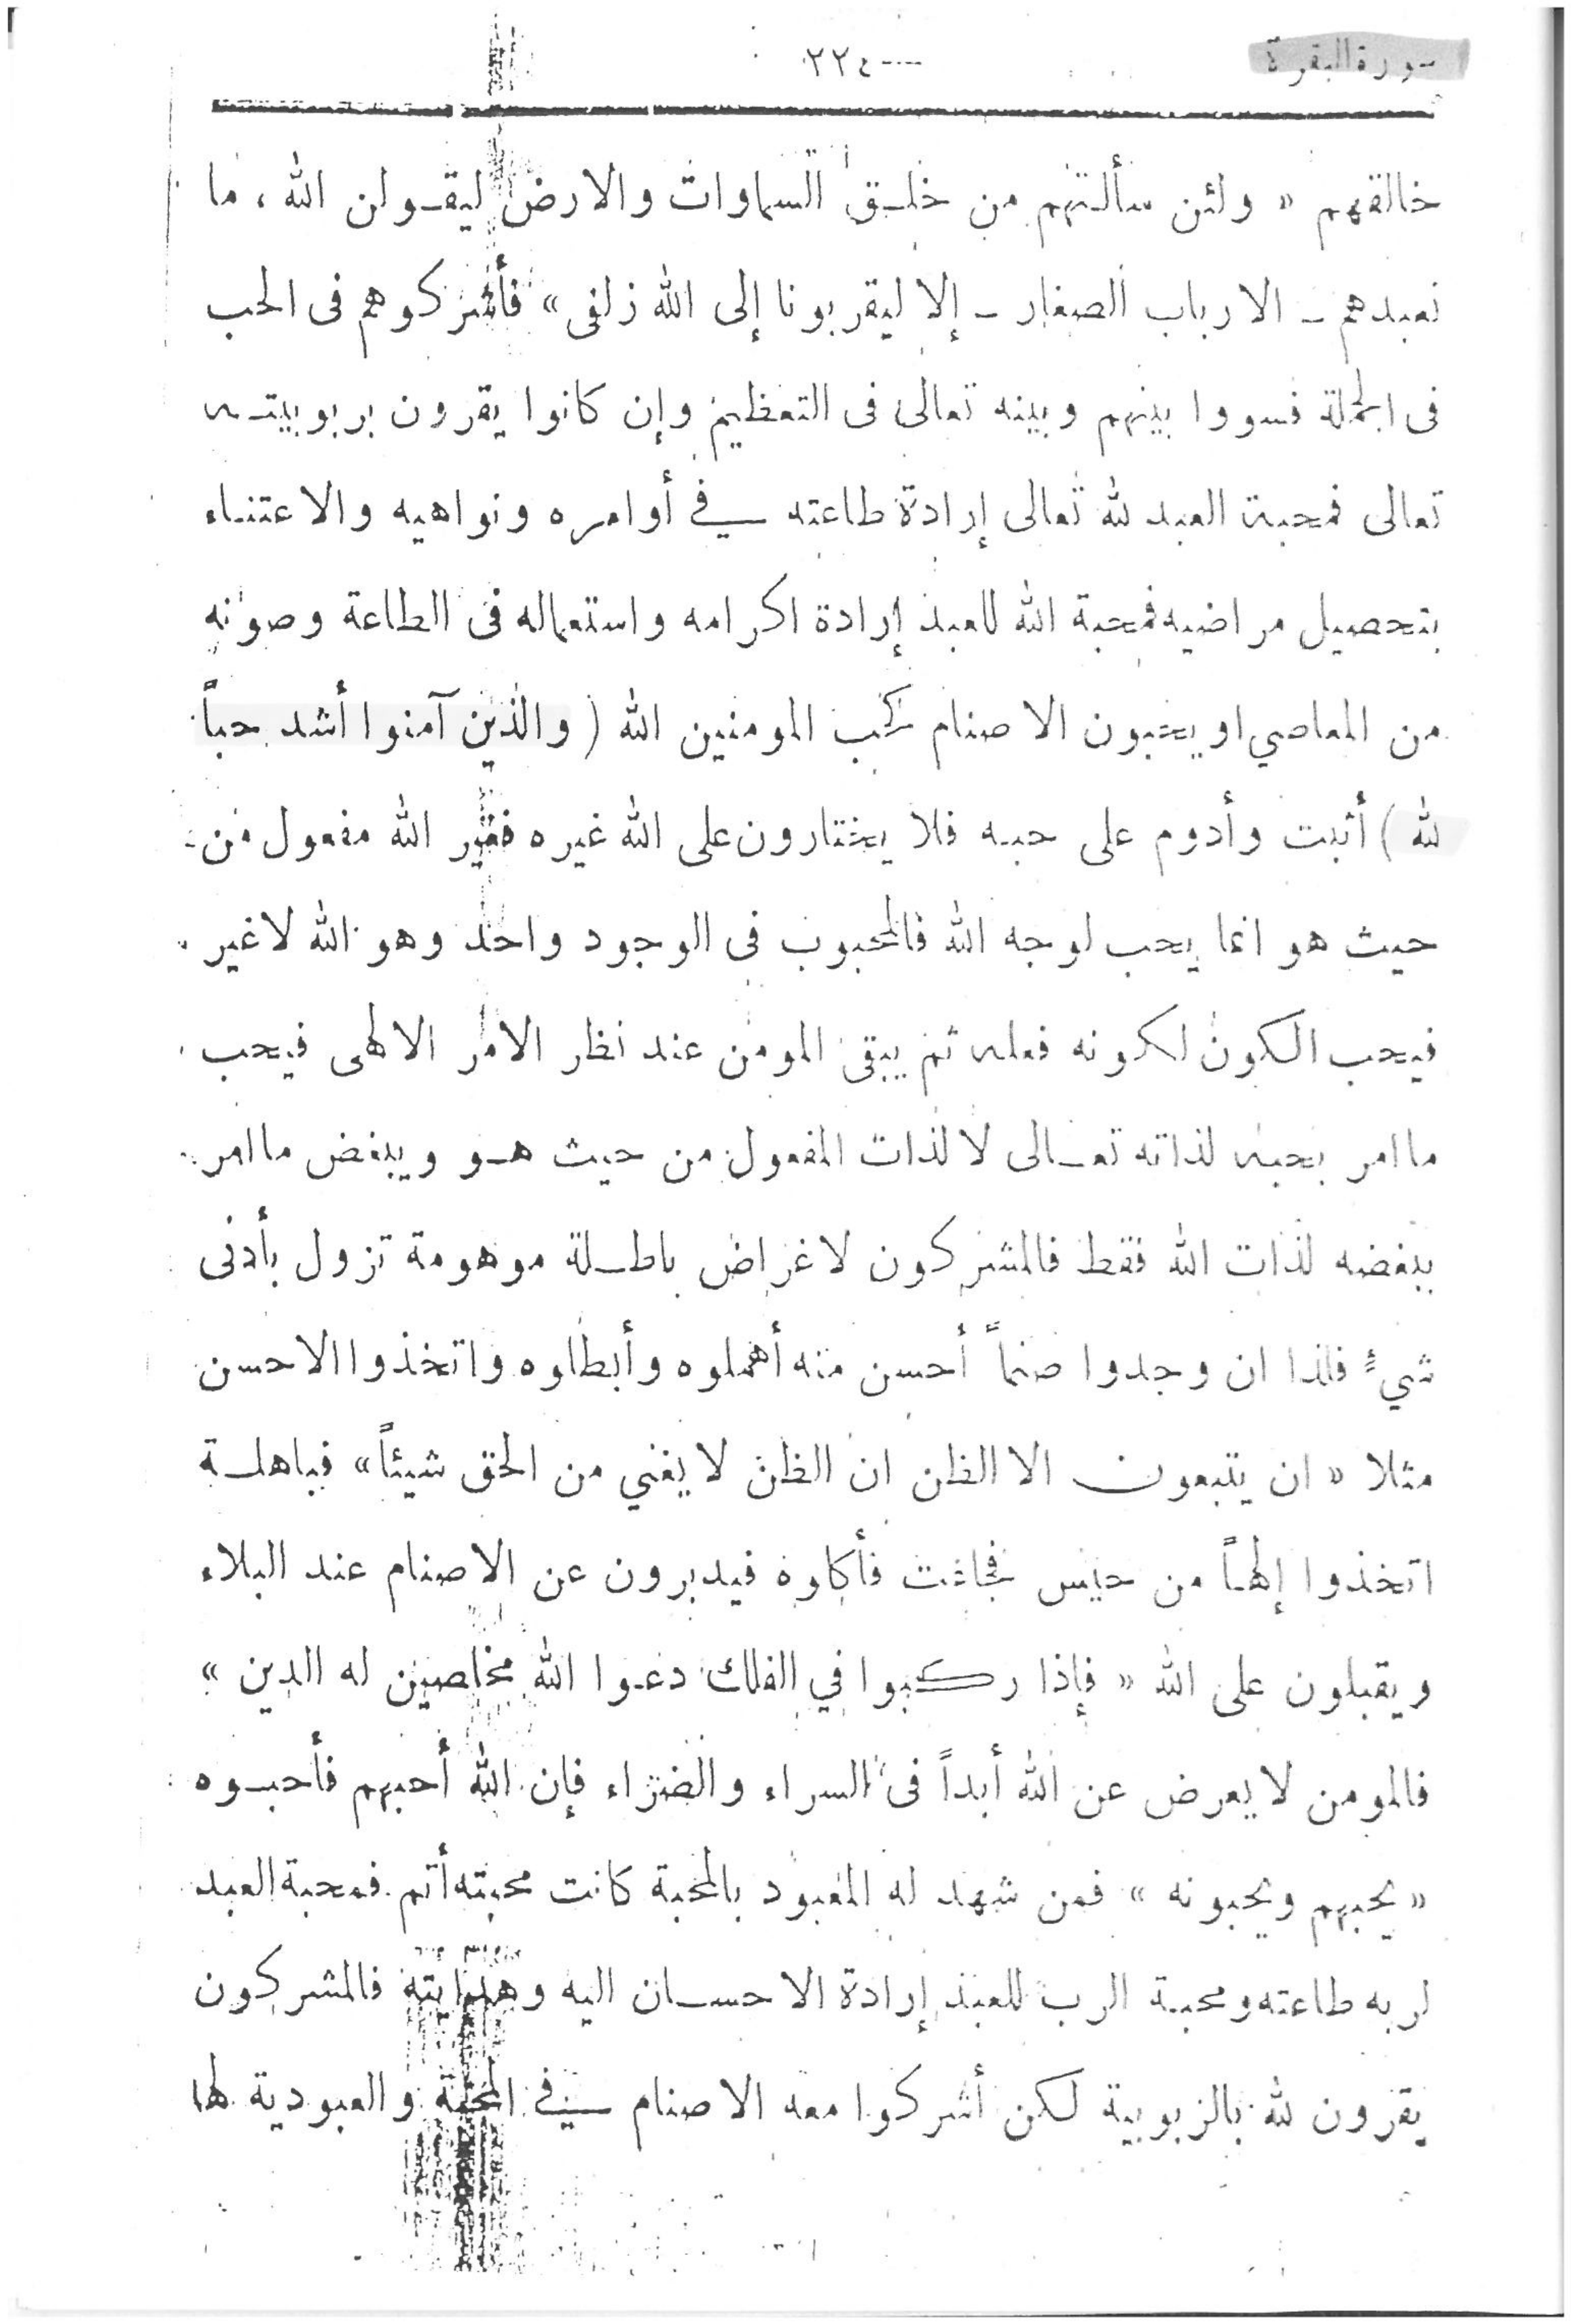 سورة البقرة
٢٢٤
خالقهم « ولئن سألتهم من خلق السماوات والارض ليقولن الله ، ما
نعبدهم ـ الارباب الصغار ـ إلا ليقربونا إلى الله زلفى » فأشركوهم فى الحب
فى الجملة فسووا بينهم وبينه تعالى فى التعظيم وإن كانوا يقرون بربوبيته
تعالى فمحبة العبد لله تعالى إرادة طاعته في أوامره ونواهيه والاعتناء
بتحصيل مراضيه فمحبة الله للعبد إرادة اكرامه واستعماله فى الطاعة وصونه
من المعاصي او يحبون الاصنام كحب المومنين الله ( والذين آمنوا أشد حباً
لله ) أثبت وأدوم على حبه فلا يختارون على الله غيره فغير الله مفعول من
حيث هو انما يحب لوجه الله فالمحبوب فى الوجود واحد وهو الله لاغير .
فيحب الكون لكونه فعله ثم يبقى المومن عند نظار الامر الالهى فيحب
ما امر بحبه لذاته تعالى لا لذات المفعول من حيث هو ويبغض ما امر
ببغضه لذات الله فقط فالمشركون لاغراض باطلة موهومة تزول بأدنى
شيءٍ فلذا ان وجدوا صنماً أحسن منه أهملوه وأبطلوه واتخذوا الاحسن
مثلا « ان يتبعون الا الظن ان الظن لا يغني من الحق شيئاً » فباهلة
اتخذوا إلهاً من حيس فجاعت فأكلوه فيدبرون عن الاصنام عند البلاء
ويقبلون على الله « فإذا ركبوا في الفلك دعوا الله مخلصين له الدين »
فالمومن لا يعرض عن الله أبداً فى السراء والضراء فإن الله أحبهم فأحبوه
« يحبهم ويحبونه » فمن شهد له المعبود بالمحبة كانت محبته أتم فمحبة العبد
لربه طاعته ومحبة الرب للعبد إرادة الاحسان اليه وهدايته فالمشركون
يقرون لله بالربوبية لكن أشركوا معه الاصنام في المحبة والعبودية لها